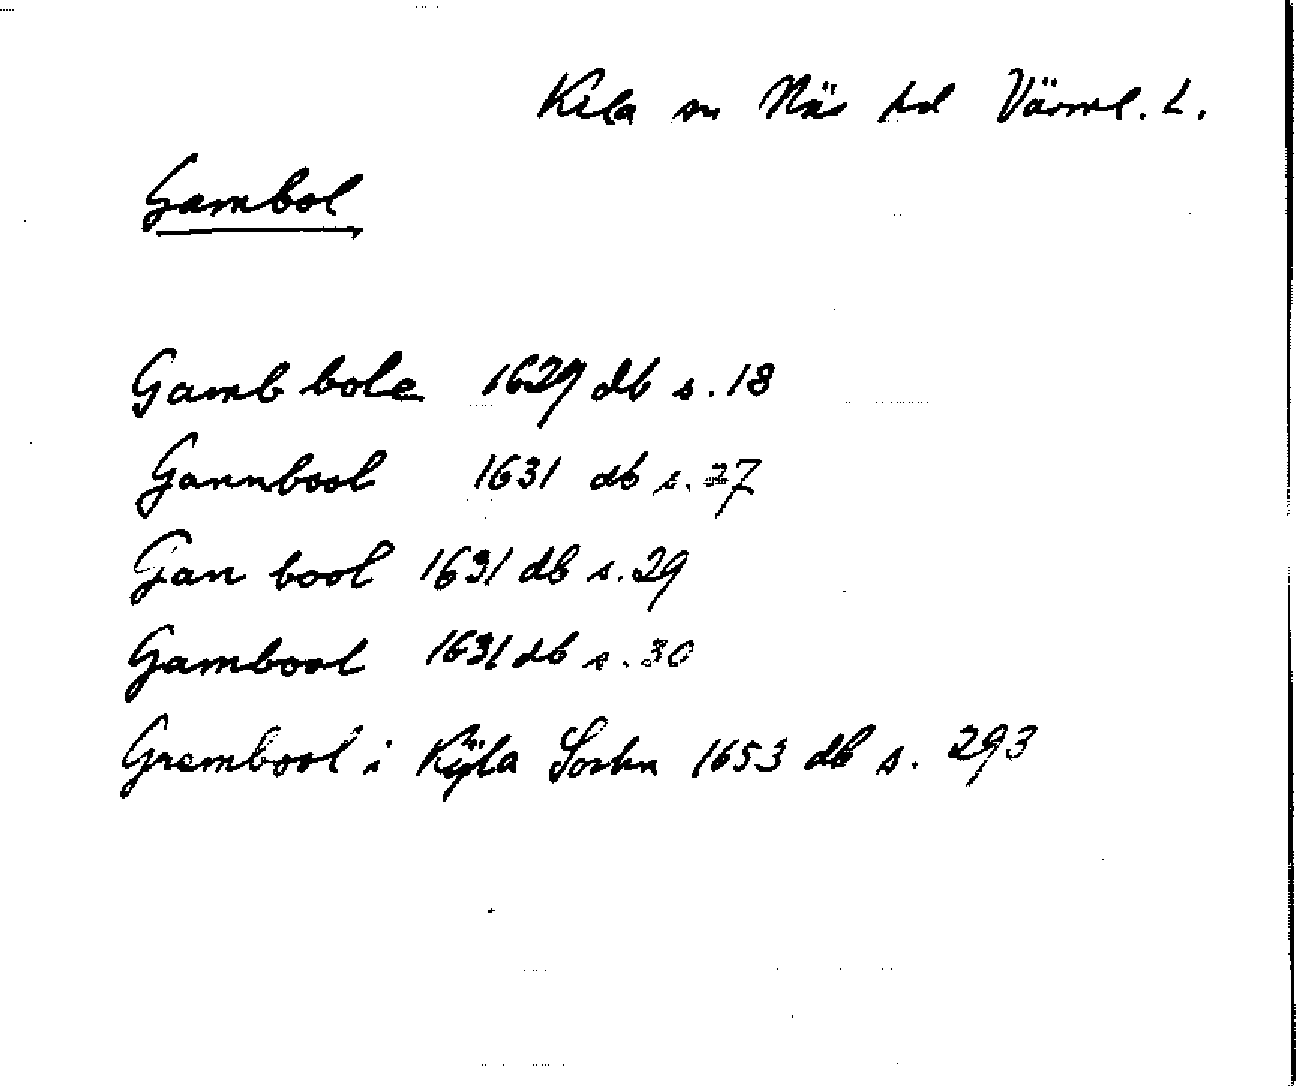 Kila sn Näs hd Värml. L.
Gambol
Gamb bole 1629 db s. 18
Gannbool 1631 db s. 27
Gan bool 1631 db s. 29
Gambool 1631 db s. 30
Grembool i Kÿla Sochn 1653 db s. 293